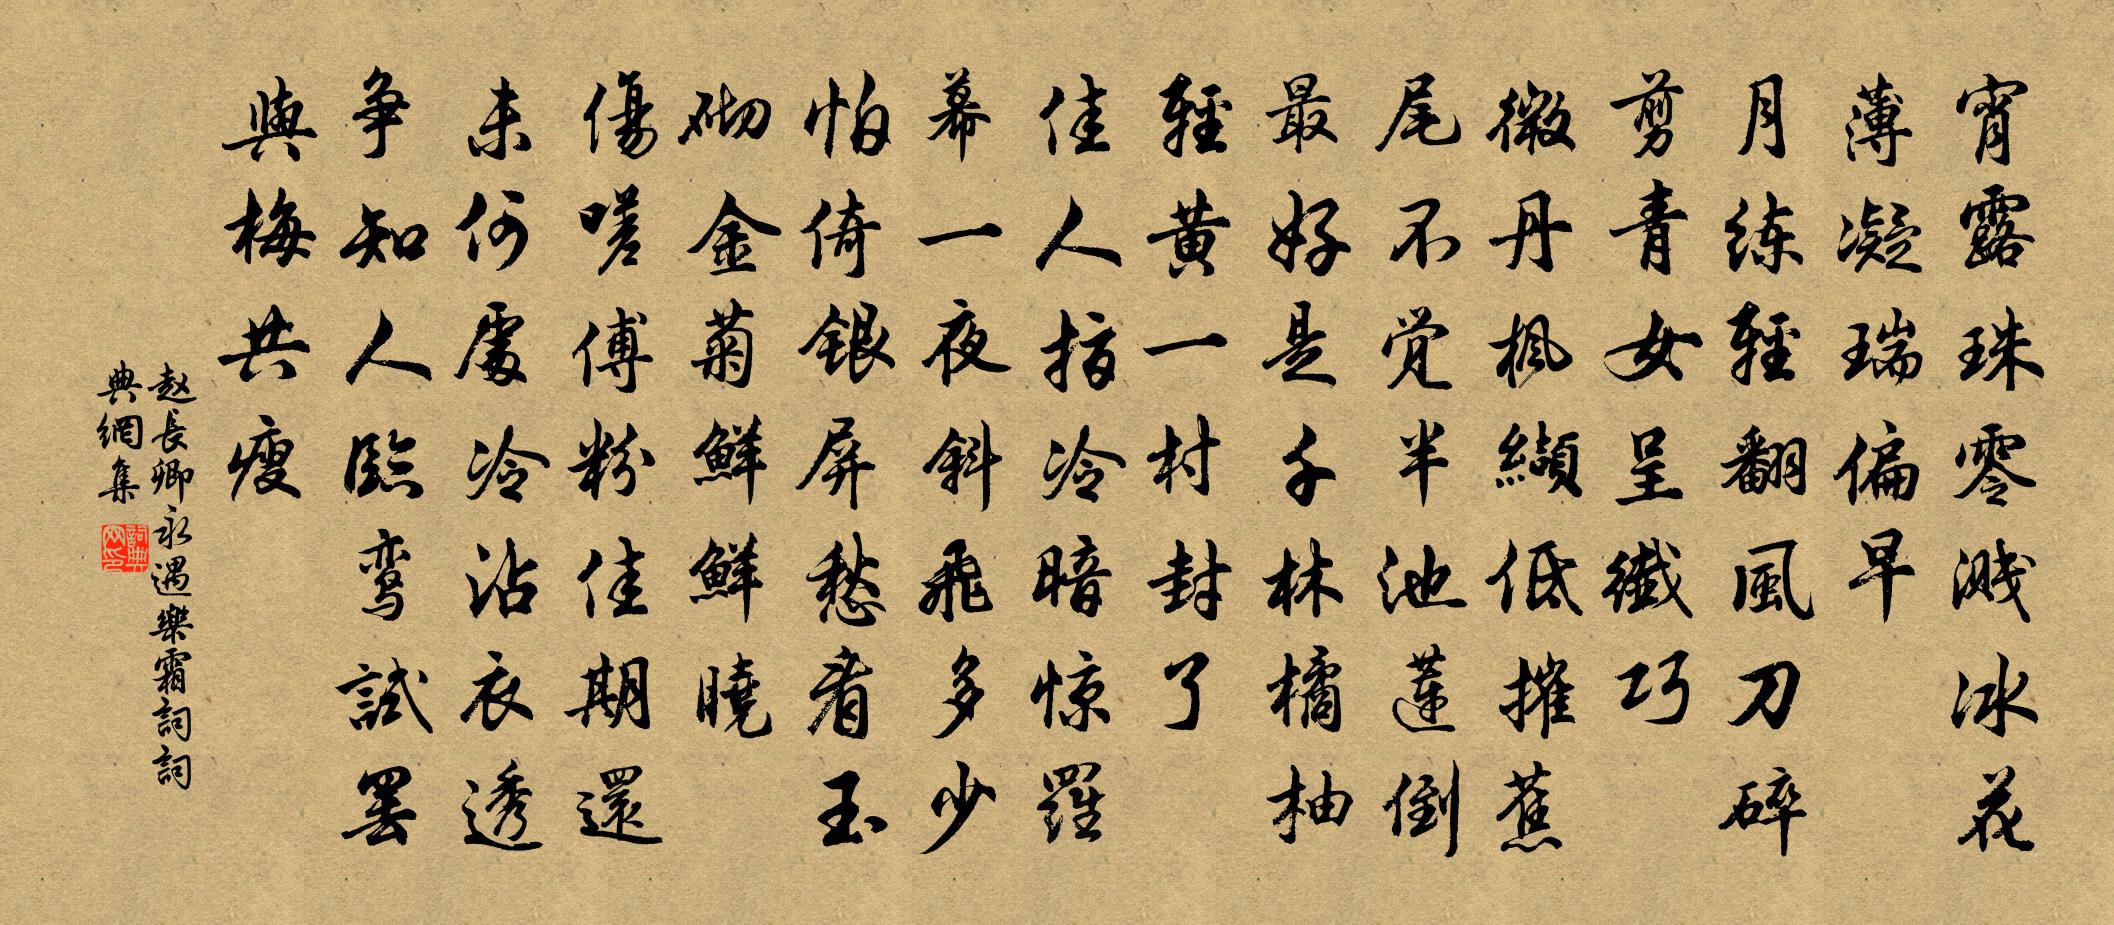 宵露珠零溅冰花
薄凝瑞偏早
月练輕翻風刀碎
剪青女呈纖巧
微丹楓纈低摧蕉
尾不觉半池蓮倒
最好是千林橘柚
輕黄一村封了
佳人指冷暗惊羅
幕一夜斜飛多少
怕倚银屏愁看玉
砌金菊鮮鮮曉
傷嗟傅粉佳期還
未何處冷沾衣透
争知人臨鸾試罢
與梅共瘦
赵長卿永遇樂霜詞詞
典網集
詞典
网印